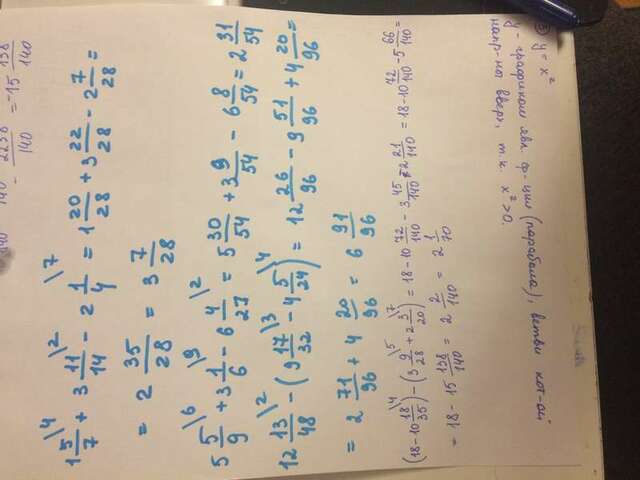 - 2238/140 = -15 138/140
1 5/7\4 + 3 11/14\2 - 2 1/4\7 = 1 20/28 + 3 22/28 - 2 7/28 =
= 2 35/28 = 3 7/28
5 5/9\6 + 3 1/6\9 - 6 4/27\2 = 5 30/54 + 3 9/54 - 6 8/54 = 2 31/54
12 13/48\2 - (9 17/32\3 - 4 5/24\4) = 12 26/96 - 9 51/96 + 4 20/96 =
= 2 71/96 + 4 20/96 = 6 91/96
(18-10 18/35\4) - (3 9/28\5 + 2 3/20\7) = 18-10 72/140 - 3 45/140 + 2 21/140 = 18-10 72/140 - 5 66/140 =
= 18 - 15 138/140 = 2 2/140 = 2 1/70
y = x²
y - графиком явл. ф-ция (парабола), ветви кот-ой
напр-ны вверх, т.к. 0<x².